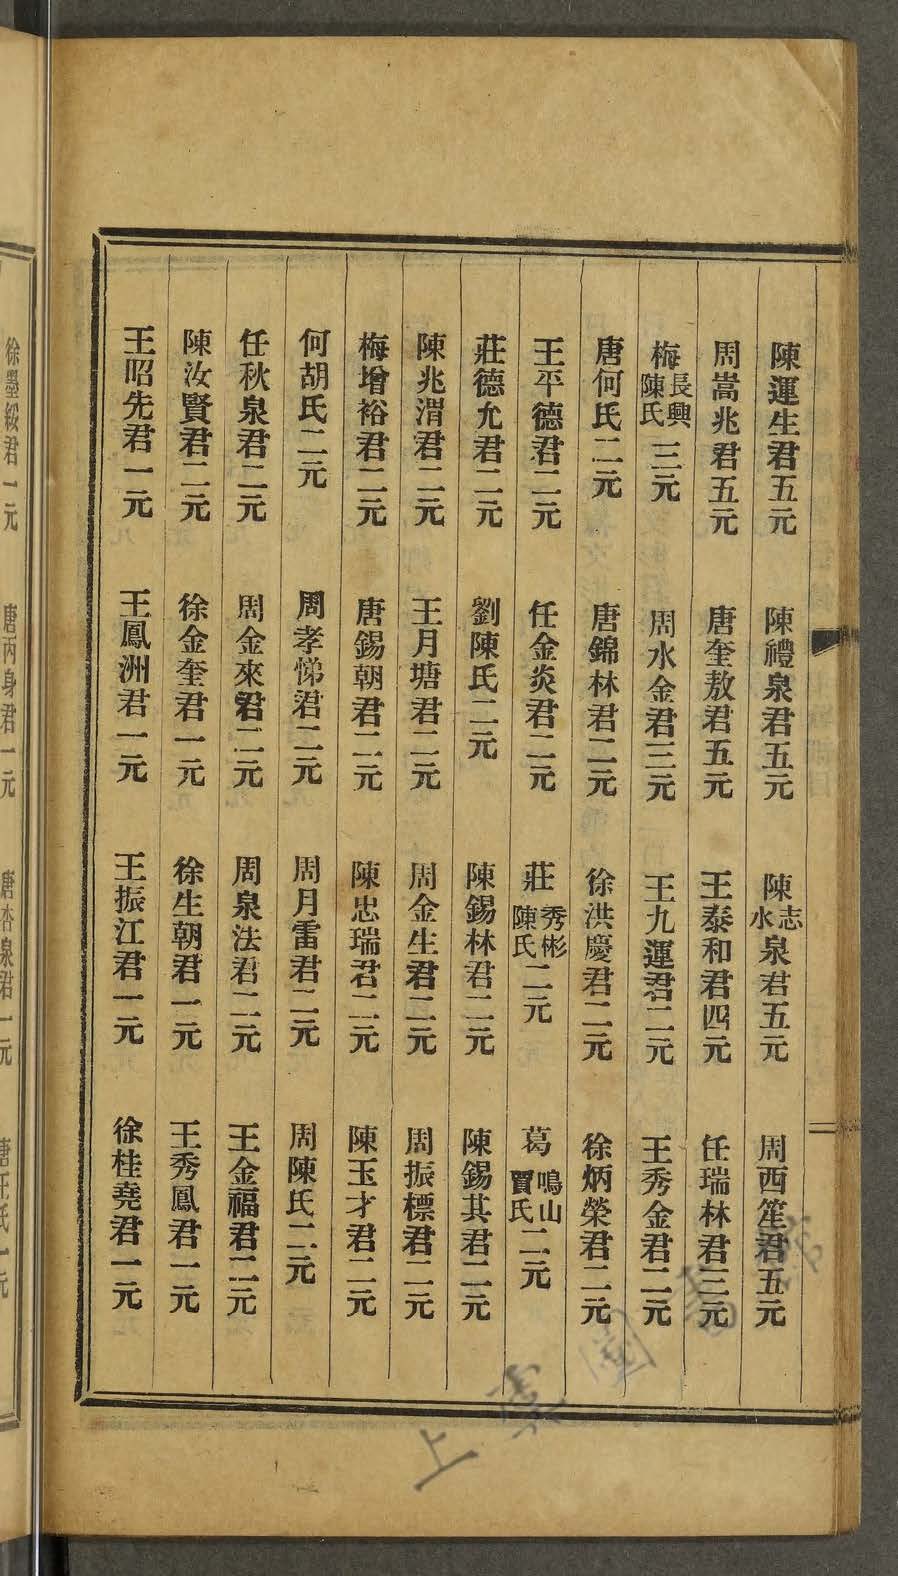 陳運生君五元　陳禮泉君五元　陳志水泉君五元　周西笙君五元
周嵩兆君五元　唐奎敖君五元　王泰和君四元　任瑞林君三元
梅長興陳氏三元　周水金君三元　王九運君二元　王秀金君二元
唐何氏二元　唐錦林君二元　徐洪慶君二元　徐炳榮君二元
王平德君二元　任金炎君二元　莊秀彬陳氏二元　葛鳴山賈氏二元
莊德允君二元　劉陳氏二元　陳錫林君二元　陳錫其君二元
陳兆渭君二元　王月塘君二元　周金生君二元　周振標君二元
梅增裕君二元　唐錫朝君二元　陳忠瑞君二元　陳玉才君二元
何胡氏二元　周孝悌君二元　周月雷君二元　周陳氏二元
任秋泉君二元　周金來君二元　周泉法君二元　王金福君二元
陳汝賢君二元　徐金奎君一元　徐生朝君一元　王秀鳳君一元
王昭先君一元　王鳳洲君一元　王振江君一元　徐桂堯君一元
徐墨綬君一元　唐丙身君一元　唐杏泉君一元　唐王氏一元
上虞圖書館